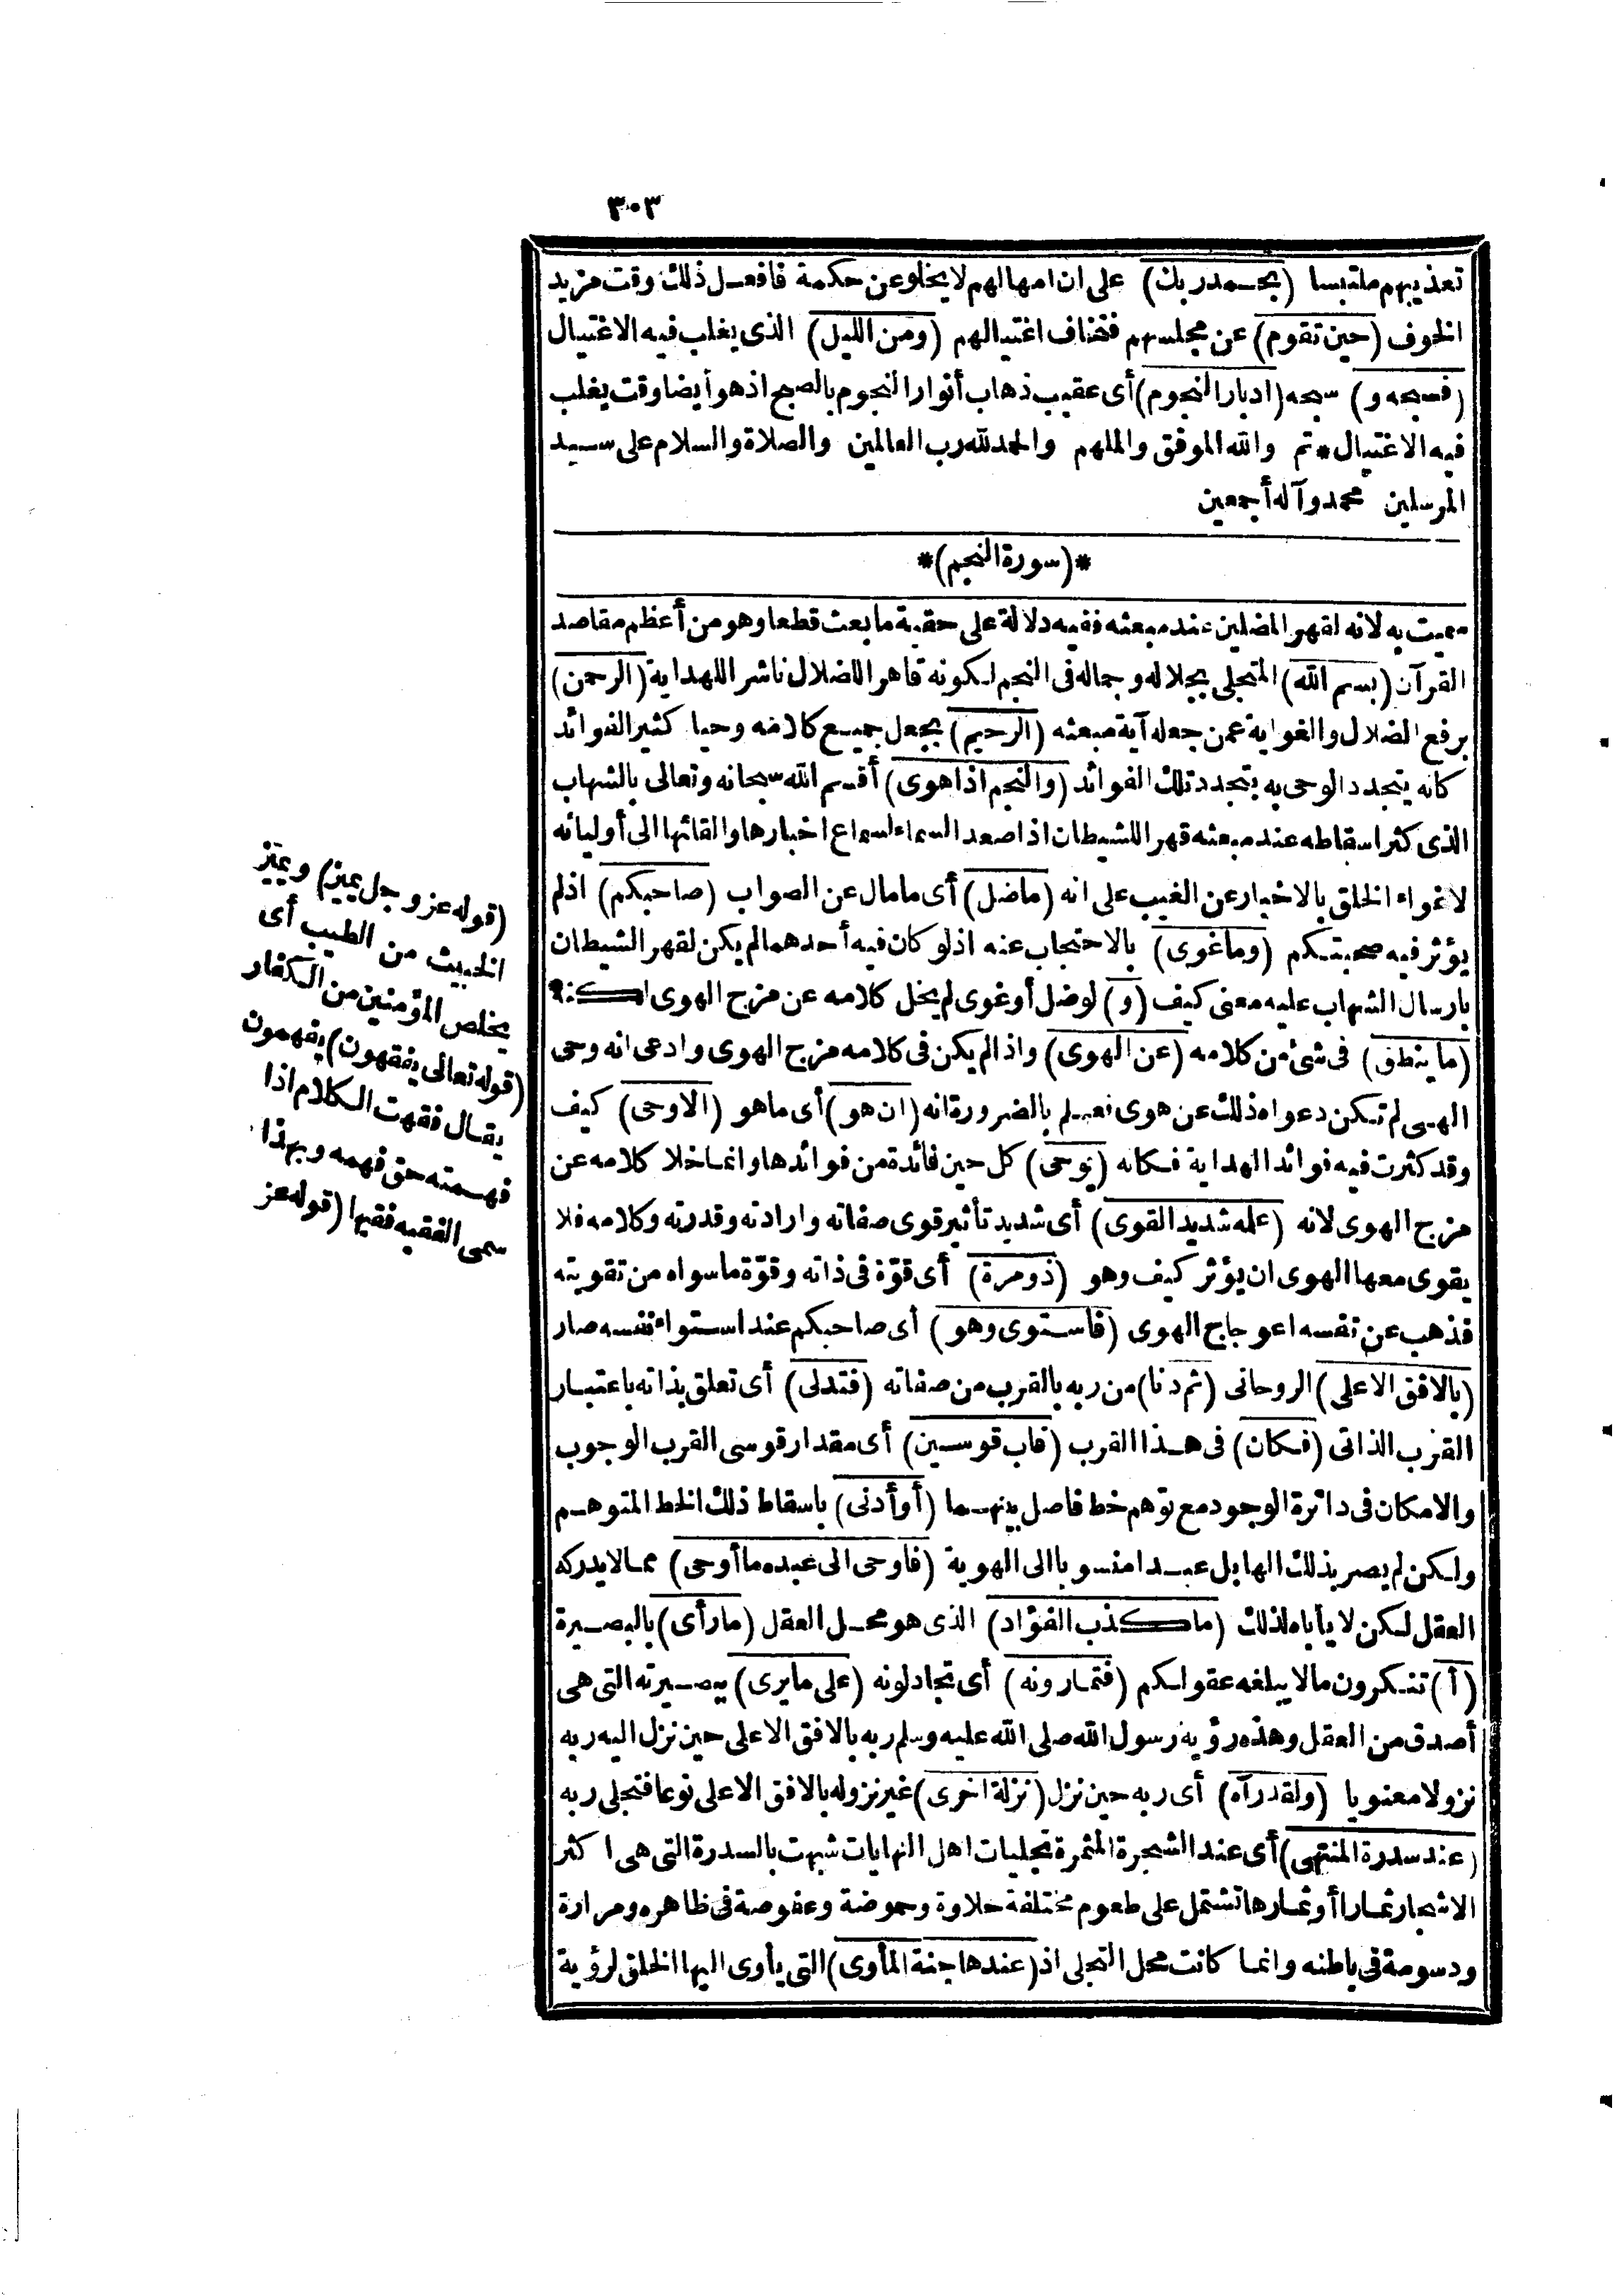 ٣٠٣
تعذيبهم ملتبسا (بحمد ربك) على ان امهالهم لا يخلو عن حكمة فافعل ذلك وقت مزيد
الخوف (حين تقوم) عن مجلسهم فتخاف اغتيالهم (ومن الليل) الذى يغلب فيه الاغتيال
(فسبحه و) سبحه (ادبار النجوم) أى عقيب ذهاب أنوار النجوم بالصبح اذ هو أيضا وقت يغلب
فيه الاغتيال * تم والله الموفق والملهم والحمد لله رب العالمين والصلاة والسلام على سيد
المرسلين محمد وآله أجمعين
*(سورة النجم)*
سميت به لانه لقهر المضلين عند مبعثه ففيه دلالة على حقية ما بعث قطعا وهو من أعظم مقاصد
القرآن (بسم الله) المتجلى بجلاله وجماله فى النجم لكونه قاهرا للضلال ناشرا للهداية (الرحمن)
برفع الضلال والغواية عمن جعله آية مبعثه (الرحيم) بجعل جميع كلامه وحيا كثير الفوائد
كانه يتجدد الوحى به بتجدد تلك الفوائد (والنجم اذا هوى) أقسم الله سبحانه وتعالى بالشهاب
الذى كثر اسقاطه عند مبعثه قهرا للشيطان اذا صعد السماء لسماع اخبارها والقائها الى أوليائه
لاغواء الخلق بالاخبار عن الغيب على انه (ماضل) أى ما مال عن الصواب (صاحبكم) اذ لم
يؤثر فيه صحبتكم (وما غوى) بالاحتجاب عنه اذ لو كان فيه أحدهما لم يكن لقهر الشيطان
بارسال الشهاب عليه معنى كيف (و) لو ضل أو غوى لم يخل كلامه عن مزج الهوى لكنه
(ما ينطق) فى شئ من كلامه (عن الهوى) واذ لم يكن فى كلامه مزج الهوى وادعى انه وحى
الهى لم تكن دعواه ذلك عن هوى نعلم بالضرورة انه (ان هو) أى ما هو (الا وحى) كيف
وقد كثرت فيه فوائد الهداية فكانه (يوحى) كل حين فائدة من فوائدها وانما خلا كلامه عن
مزج الهوى لانه (علمه شديد القوى) أى شديد تأثير قوى صفاته وارادته وقدرته وكلامه فلا
يقوى معها الهوى ان يؤثر كيف وهو (ذو مرة) أى قوّة فى ذاته وقوّة ما سواه من تقويته
فذهب عن نفسه اعوجاج الهوى (فاستوى وهو) أى صاحبكم عند استواء نفسه صار
(بالافق الاعلى) الروحانى (ثم دنا) من ربه بالقرب من صفاته (فتدلى) أى تعلق بذاته باعتبار
القرب الذاتى (فكان) فى هذا القرب (قاب قوسين) أى مقدار قوسى القرب الوجوب
والامكان فى دائرة الوجود مع توهم خط فاصل بينهما (أو أدنى) باسقاط ذلك الخط المتوهم
ولكن لم يصر بذلك الها بل عبدا منسوبا الى الهوية (فاوحى الى عبده ما أوحى) مما لا يدركه
العقل لكن لا يأباه لذلك (ما كذب الفؤاد) الذى هو محل العقل (ما رأى) بالبصيرة
(أ) تنكرون ما لا يبلغه عقولكم (فتمارونه) أى تجادلونه (على ما يرى) ببصيرته التى هى
أصدق من العقل وهذه رؤية رسول الله صلى الله عليه وسلم ربه بالافق الاعلى حين نزل اليه ربه
نزولا معنويا (ولقد رآه) أى ربه حين نزل (نزلة اخرى) غير نزوله بالافق الاعلى نوعا فتجلى ربه
(عند سدرة المنتهى) أى عند الشجرة المثمرة تجليات اهل النهايات شبهت بالسدرة التى هى اكثر
الاشجار ثمارا أو ثمارها تشتمل على طعوم مختلفة حلاوة وحموضة وعفوصة فى ظاهره ومرارة
ودسومة فى باطنه وانما كانت محل التجلى اذ (عندها جنة المأوى) التى يأوى اليها الخلق لرؤية
(قوله عز وجل يميز) ويميّز
الخبيث من الطيب أى
يخلص المؤمنين من الكفار
(قوله تعالى يفقهون) يفهمون
يقال فقهت الكلام اذا
فهمته حق فهمه وبهذا
سمى الفقيه فقيها (قوله عز